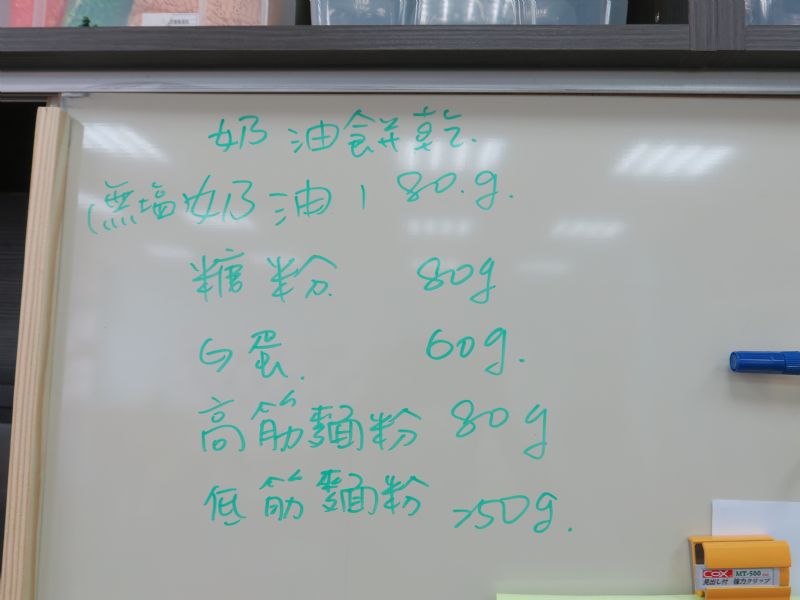 奶油餅乾.
(無塩奶油 180.g.
糖粉 80g
蛋. 60g.
高筋麵粉 80g
低筋麵粉 250g.
COX MT-500
見出し付 強力クリップ